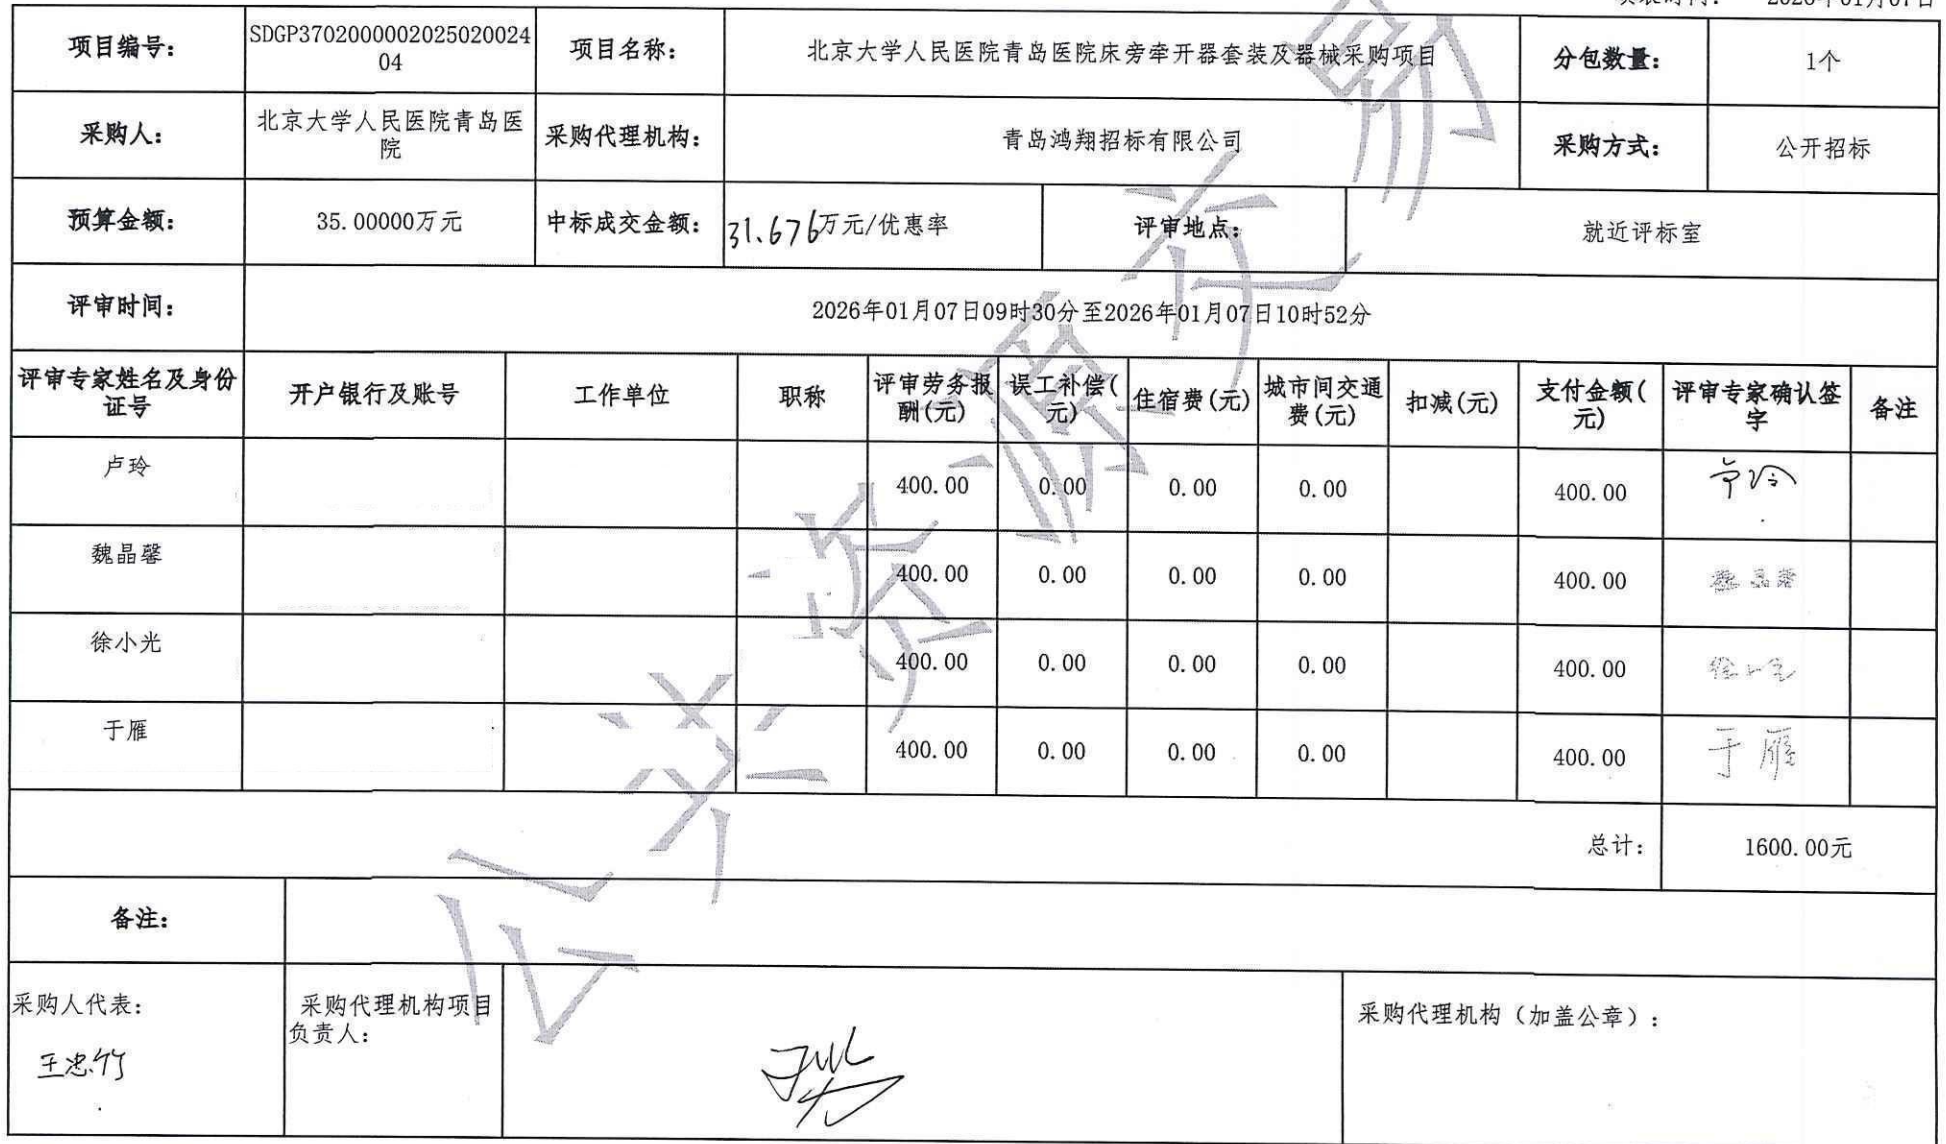 2026年01月07日
项目编号：
SDGP3702000002025020024
04
项目名称：
北京大学人民医院青岛医院床旁牵开器套装及器械采购项目
分包数量：
1个
采购人：
北京大学人民医院青岛医
院
采购代理机构：
青岛鸿翔招标有限公司
采购方式：
公开招标
预算金额：
35.00000万元
中标成交金额：
31.676万元/优惠率
评审地点：
就近评标室
评审时间：
2026年01月07日09时30分至2026年01月07日10时52分
评审专家姓名及身份
证号
开户银行及账号
工作单位
职称
评审劳务报
酬(元)
误工补偿(
元)
住宿费(元)
城市间交通
费(元)
扣减(元)
支付金额(
元)
评审专家确认签
字
备注
卢玲
400.00
0.00
0.00
0.00
400.00
卢玲
魏晶馨
400.00
0.00
0.00
0.00
400.00
魏晶馨
徐小光
400.00
0.00
0.00
0.00
400.00
徐小光
于雁
400.00
0.00
0.00
0.00
400.00
于雁
总计：
1600.00元
备注：
采购人代表：
王忠竹
采购代理机构项目
负责人：
采购代理机构（加盖公章）：
公共资源交易